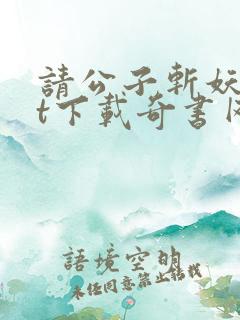 請公子斬妖
t下載奇書
語境空明
未經同意禁止轉載